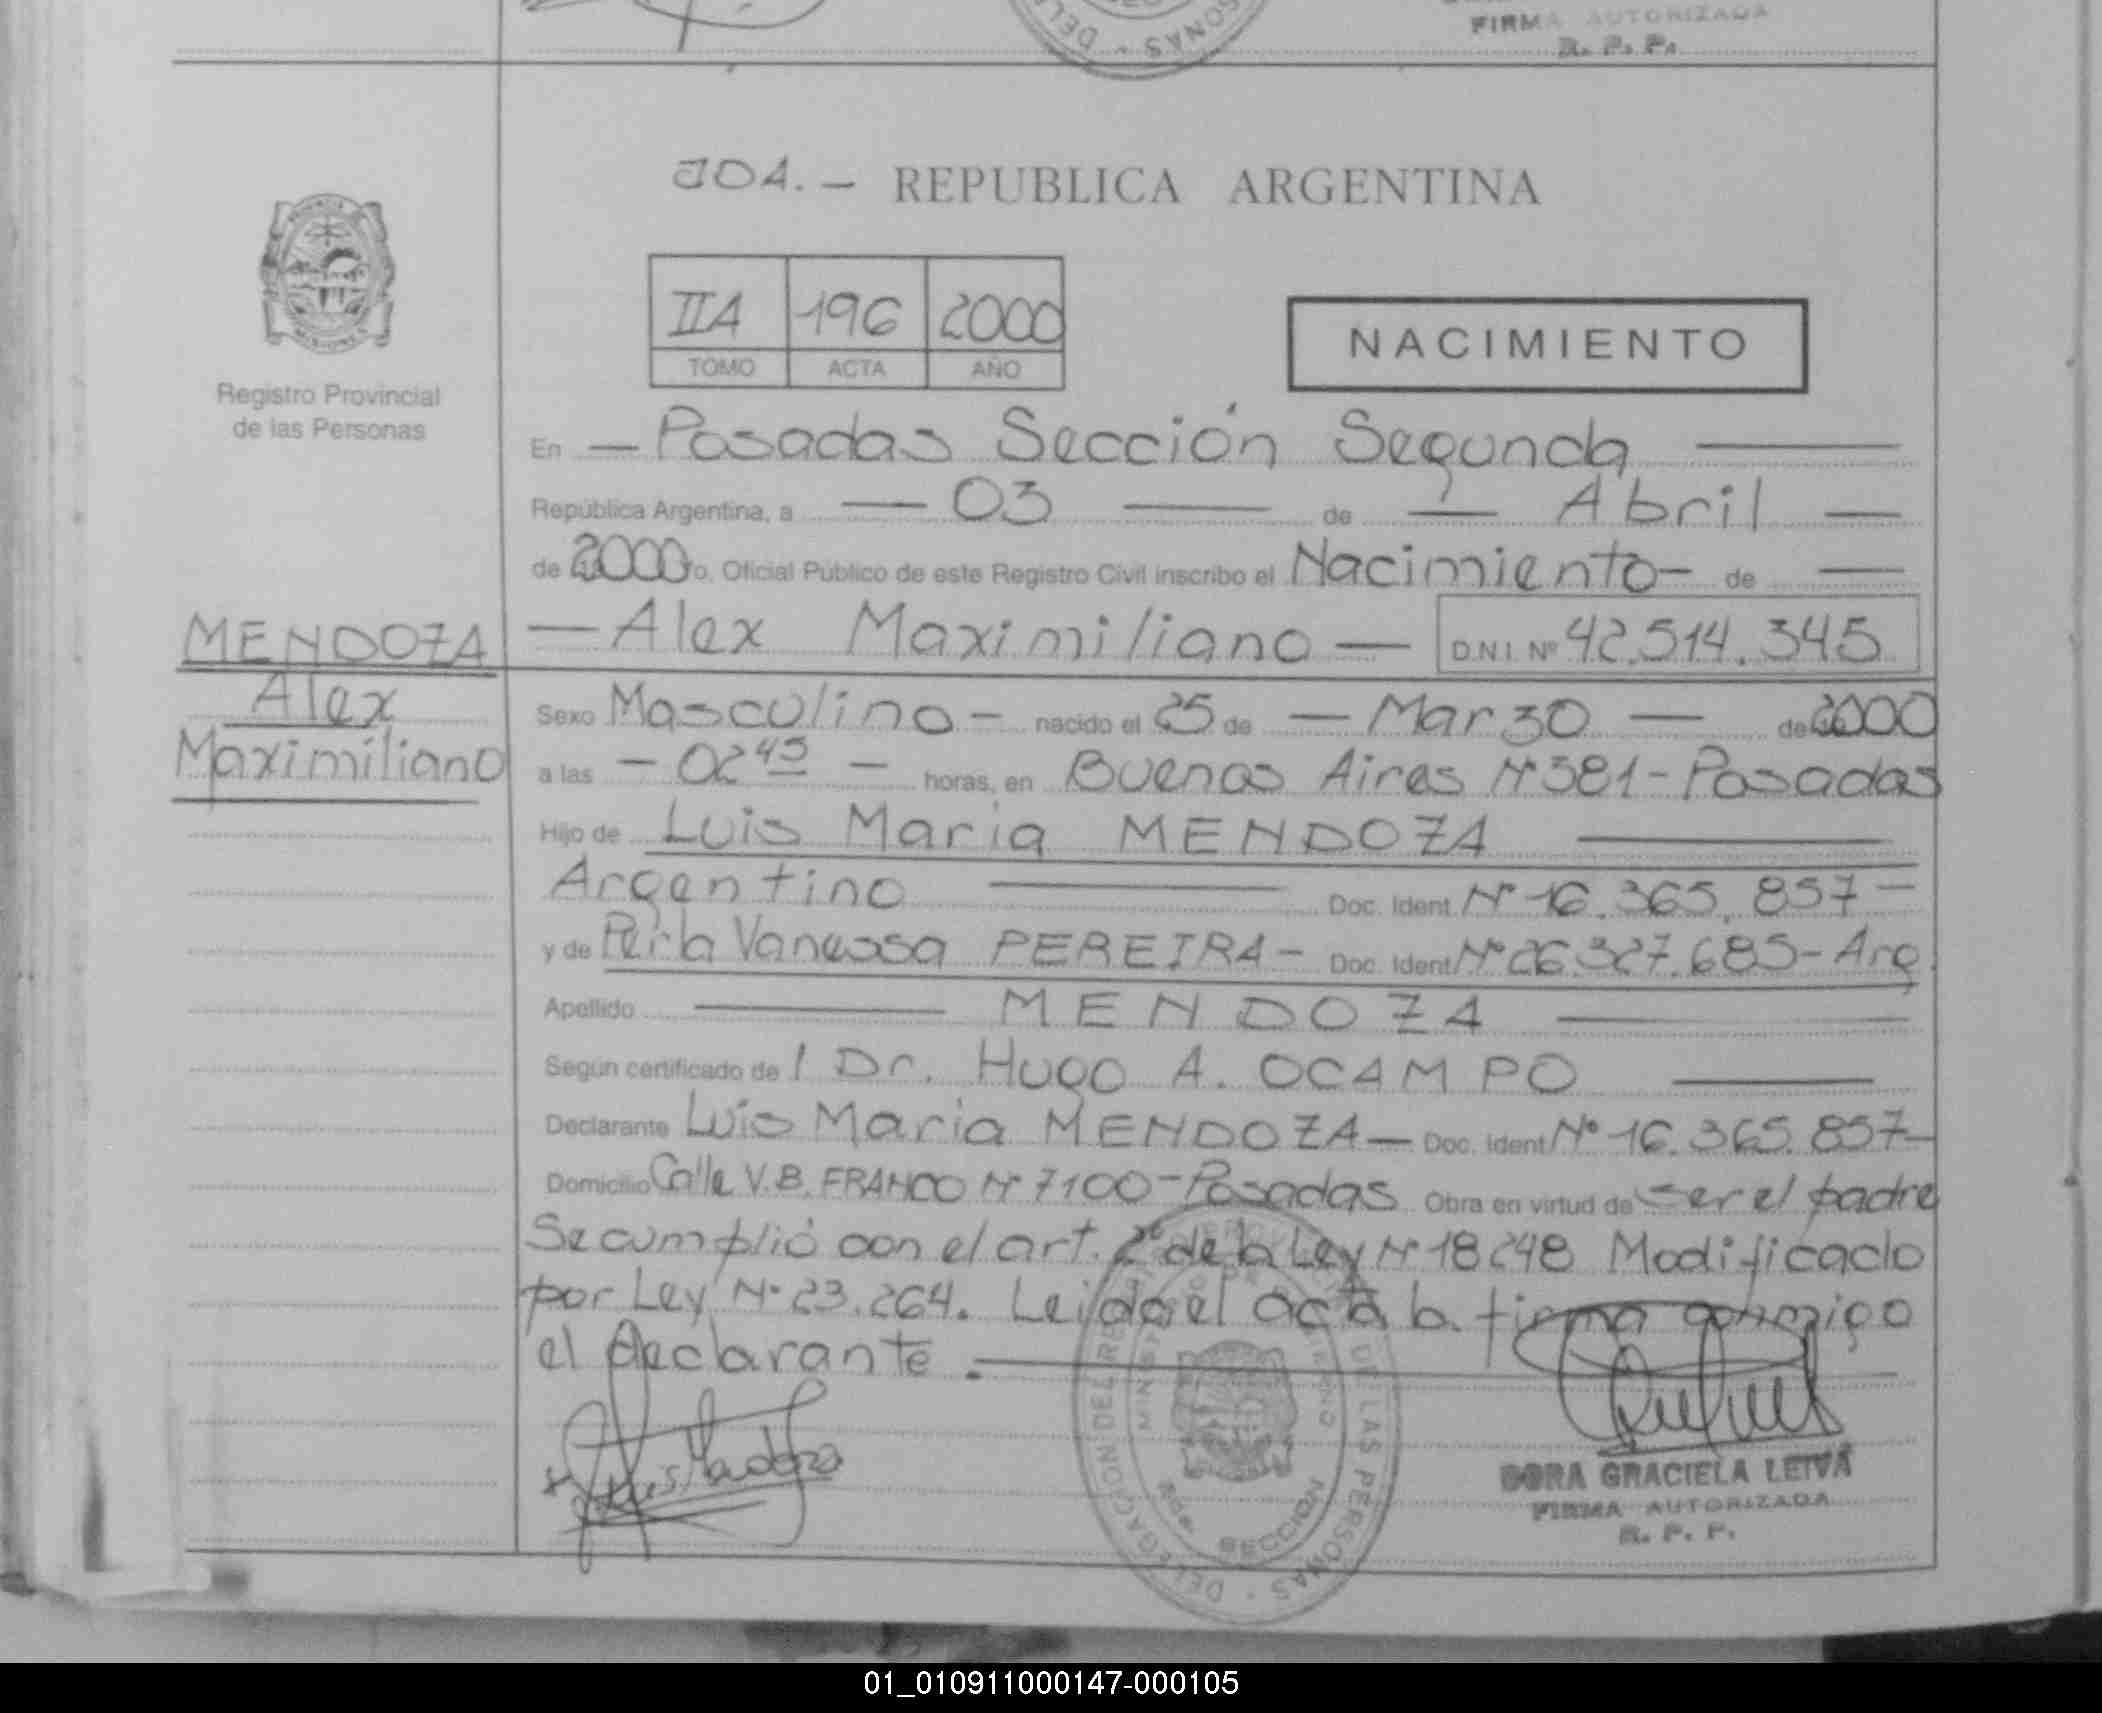 FIRMA AUTORIZADA
R. P. P.
104. — REPUBLICA ARGENTINA
IIA 196 2000
TOMO ACTA AÑO
NACIMIENTO
Registro Provincial
de las Personas
En — Posadas Sección Segunda —
República Argentina, a — 03 — de — Abril —
de 2000 yo, Oficial Público de este Registro Civil inscribo el Nacimiento — de —
MENDOZA
Alex
Maximiliano
— Alex Maximiliano — D.N.I. Nº 42.514.345
Sexo Masculino — nacido el 25 de — Marzo — de 2000
a las — 02 45 — horas, en Buenos Aires Nº 381 - Posadas
Hijo de Luis Maria MENDOZA —
Argentino — Doc. Ident. Nº 16.365.857 —
y de Perla Vanessa PEREIRA — Doc. Ident. Nº 26.327.685 - Arg.
Apellido — MENDOZA —
Según certificado de l Dr. Hugo A. OCAMPO —
Declarante Luis Maria MENDOZA — Doc. Ident. Nº 16.365.857 —
Domicilio Calle V.B. FRANCO Nº 7100 - Posadas Obra en virtud de ser el padre
Se cumplió con el art. 2º de la Ley Nº 18248 Modificado
por Ley Nº 23.264. Leida el acta la firma conmigo
el declarante. —
DELEGACION DEL REGISTRO DE LAS PERSONAS
2da. SECCION
DORA GRACIELA LEIVA
FIRMA AUTORIZADA
R. P. P.
01_010911000147-000105